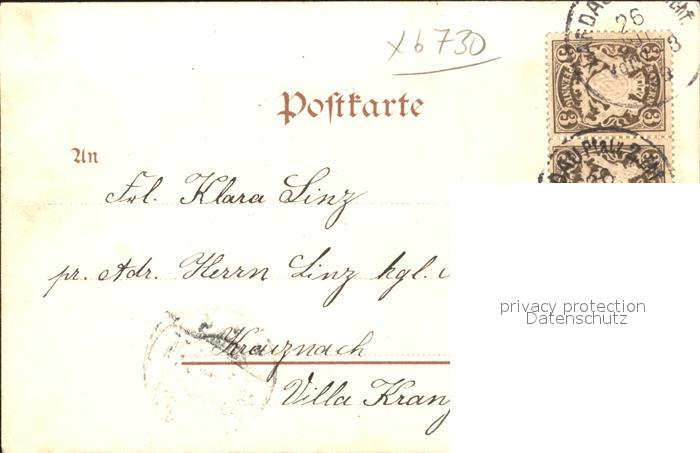 xb730
Postkarte
An
Frl. Klara Linz
pr. Adr. Herrn Linz kgl.
Kreuznach
Villa Kranz
privacy protection
Datenschutz
3 3
BAYERN
3 3
26
Pfalz 2